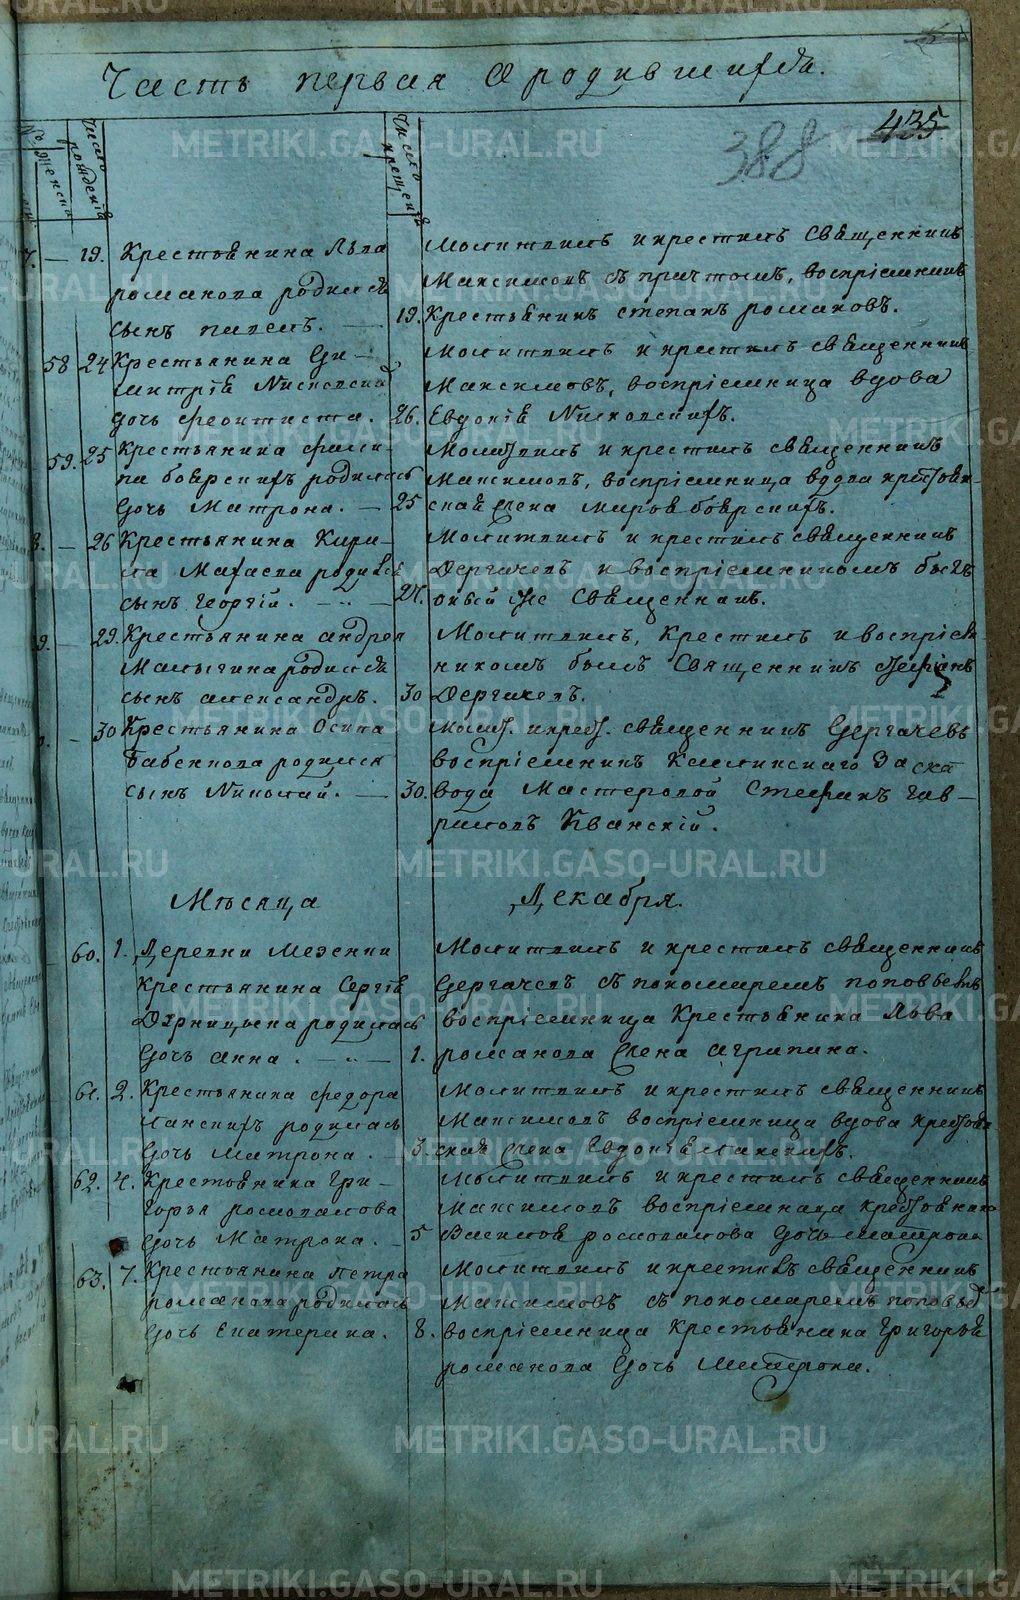 Часть первая о родившихся.
435
388
№
женска
Число рожденія
Число крещенія
19. Крестьянина Льва
романова родился
сынъ павелъ.
Молитвилъ и крестилъ священникъ
Максимовъ съ причтомъ, воспріемникъ
19. Крестьянинъ степанъ романовъ.
58 24 Крестьянина Ди-
митрія
дочь феоктиста.
Молитвилъ и крестилъ священникъ
Максимовъ, воспріемница вдова
26. Евдокія
59. 25 Крестьянина фили-
па боярскихъ родилась
дочь Матрона.
Молитвилъ и крестилъ священникъ
Максимовъ, воспріемница вдова крестьян-
25 ская жена Марья боярскихъ.
26 Крестьянина Кири-
ла родился
сынъ Георгій.
Молитвилъ и крестилъ священникъ
Дергачевъ и воспріемникомъ былъ
27. оный же священникъ.
29. Крестьянина андрея
Малыгина родился
сынъ александръ.
Молитвилъ, крестилъ и воспріем-
никомъ былъ Священникъ стефанъ
30 Дергачевъ.
30 Крестьянина Осипа
Бабенкова родился
сынъ Николай.
молит. и крест. священникъ Дергачевъ
воспріемникъ за
30. вода Мастеровой Стефанъ Гав-
риловъ Кванскій.
Мѣсяца Декабря.
60. 1. Деревни Мезенки
Крестьянина Сергія
родилась
дочь анна.
Молитвилъ и крестилъ священникъ
Дергачевъ съ пономаремъ поповымъ
воспріемница Крестьянина Льва
1. романова жена агрипина.
61. 2. Крестьянина федора
родилась
дочь матрона.
Молитвилъ и крестилъ священникъ
Максимовъ воспріемница вдова крестьян
3. ская жена Евдокія
62. 4. Крестьянина Гри-
горья
дочь Матрона.
Молитвилъ и крестилъ священникъ
Максимовъ воспріемница крестьянина
5 дочь матрона
63. 7. Крестьянина Петра
романова родилась
дочь Екатерина.
Молитвилъ и крестилъ священникъ
Максимовъ съ пономаремъ поповы
8. воспріемница Крестьянина Григорья
романова дочь Матрона.
METRIKI.GASO-URAL.RU